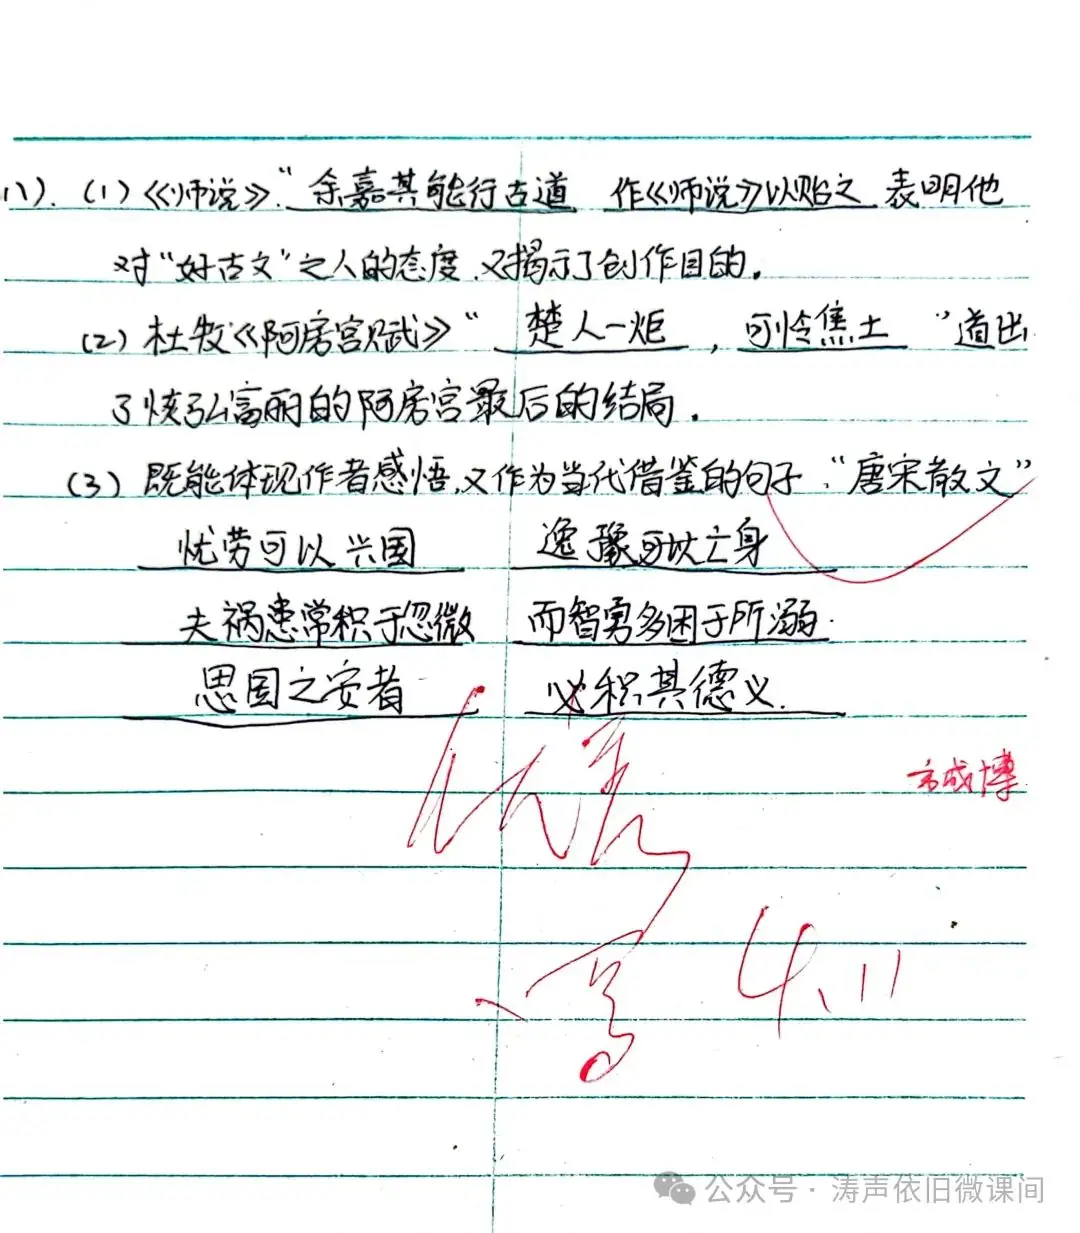 八). (1)《师说》“余嘉其能行古道 作《师说》以贻之 表明他
对“好古文”之人的态度,又揭示了创作目的。
(2) 杜牧《阿房宫赋》“楚人一炬,可怜焦土”道出
了恢弘富丽的阿房宫最后的结局.
(3) 既能体现作者感悟,又作为当代借鉴的句子,“唐宋散文”
忧劳可以兴国 逸豫可以亡身
夫祸患常积于忽微 而智勇多困于所溺.
思国之安者 必积其德义.
优秀
4.11
公众号·涛声依旧微课间